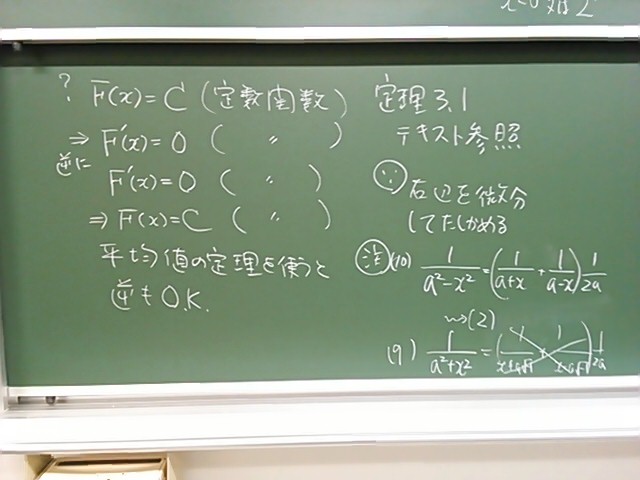 ? F(x)=C (定数関数)
⇒ F'(x)=0 ( 〃 )
逆に
F'(x)=0 ( 〃 )
⇒ F(x)=C ( 〃 )
平均値の定理を使うと
逆も O.K.
定理3.1
テキスト参照
∵ 右辺を微分
してたしかめる
注 (10) 1/(a²-x²) = (1/(a+x) + 1/(a-x)) 1/2a
⇝(2)
(9) 1/(a²+x²) =